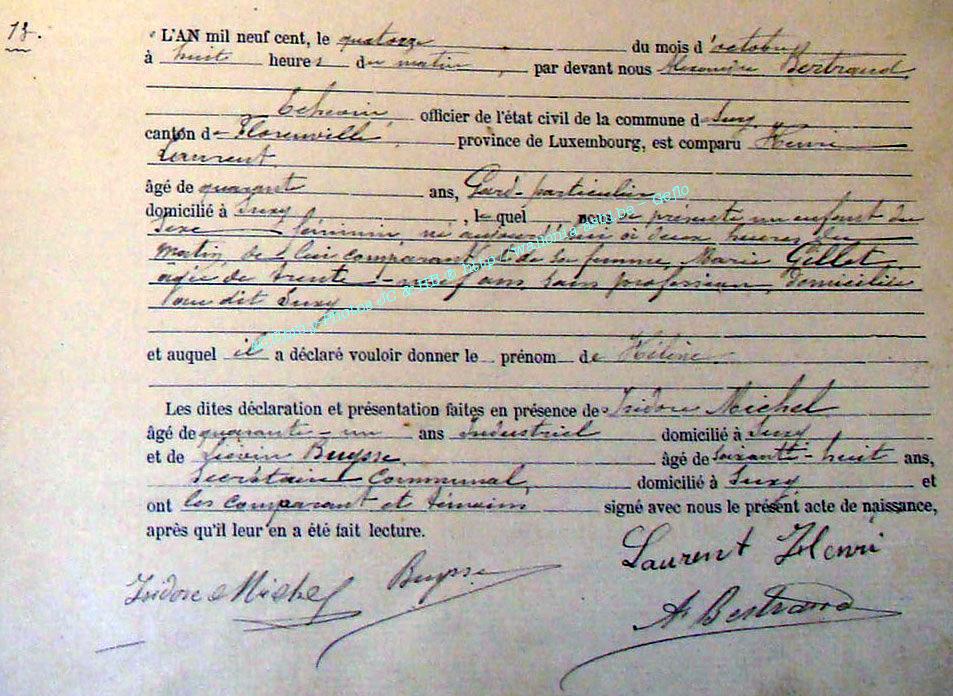 13.
L'AN mil neuf cent, le quatorze du mois d'octobre
à huit heures du matin, par devant nous Alexandre Bertrand,
Echevin officier de l'état civil de la commune de Suxy,
canton de Florenville, province de Luxembourg, est comparu Henri
Laurent
âgé de quarante ans, Gard-particulier
domicilié à Suxy, lequel nous a présenté un enfant du
sexe féminin, né aujourd'hui à deux heures du
matin, de lui comparant et de sa femme, Marie Gillet,
âgée de trente-neuf ans, sans profession, domiciliée
au dit Suxy
et auquel il a déclaré vouloir donner le prénom de Hélène
Les dites déclaration et présentation faites en présence de Isidore Michel
âgé de quarante-un ans Industriel domicilié à Suxy
et de Liévin Buysse, âgé de soixante-huit ans,
Secrétaire Communal, domicilié à Suxy et
ont les comparant et témoins signé avec nous le présent acte de naissance,
après qu'il leur en a été fait lecture.
Laurent Henri
Isidore Michel Buysse
A Bertrand
Photos JC & http://wallonia.asbl.be - Geflo